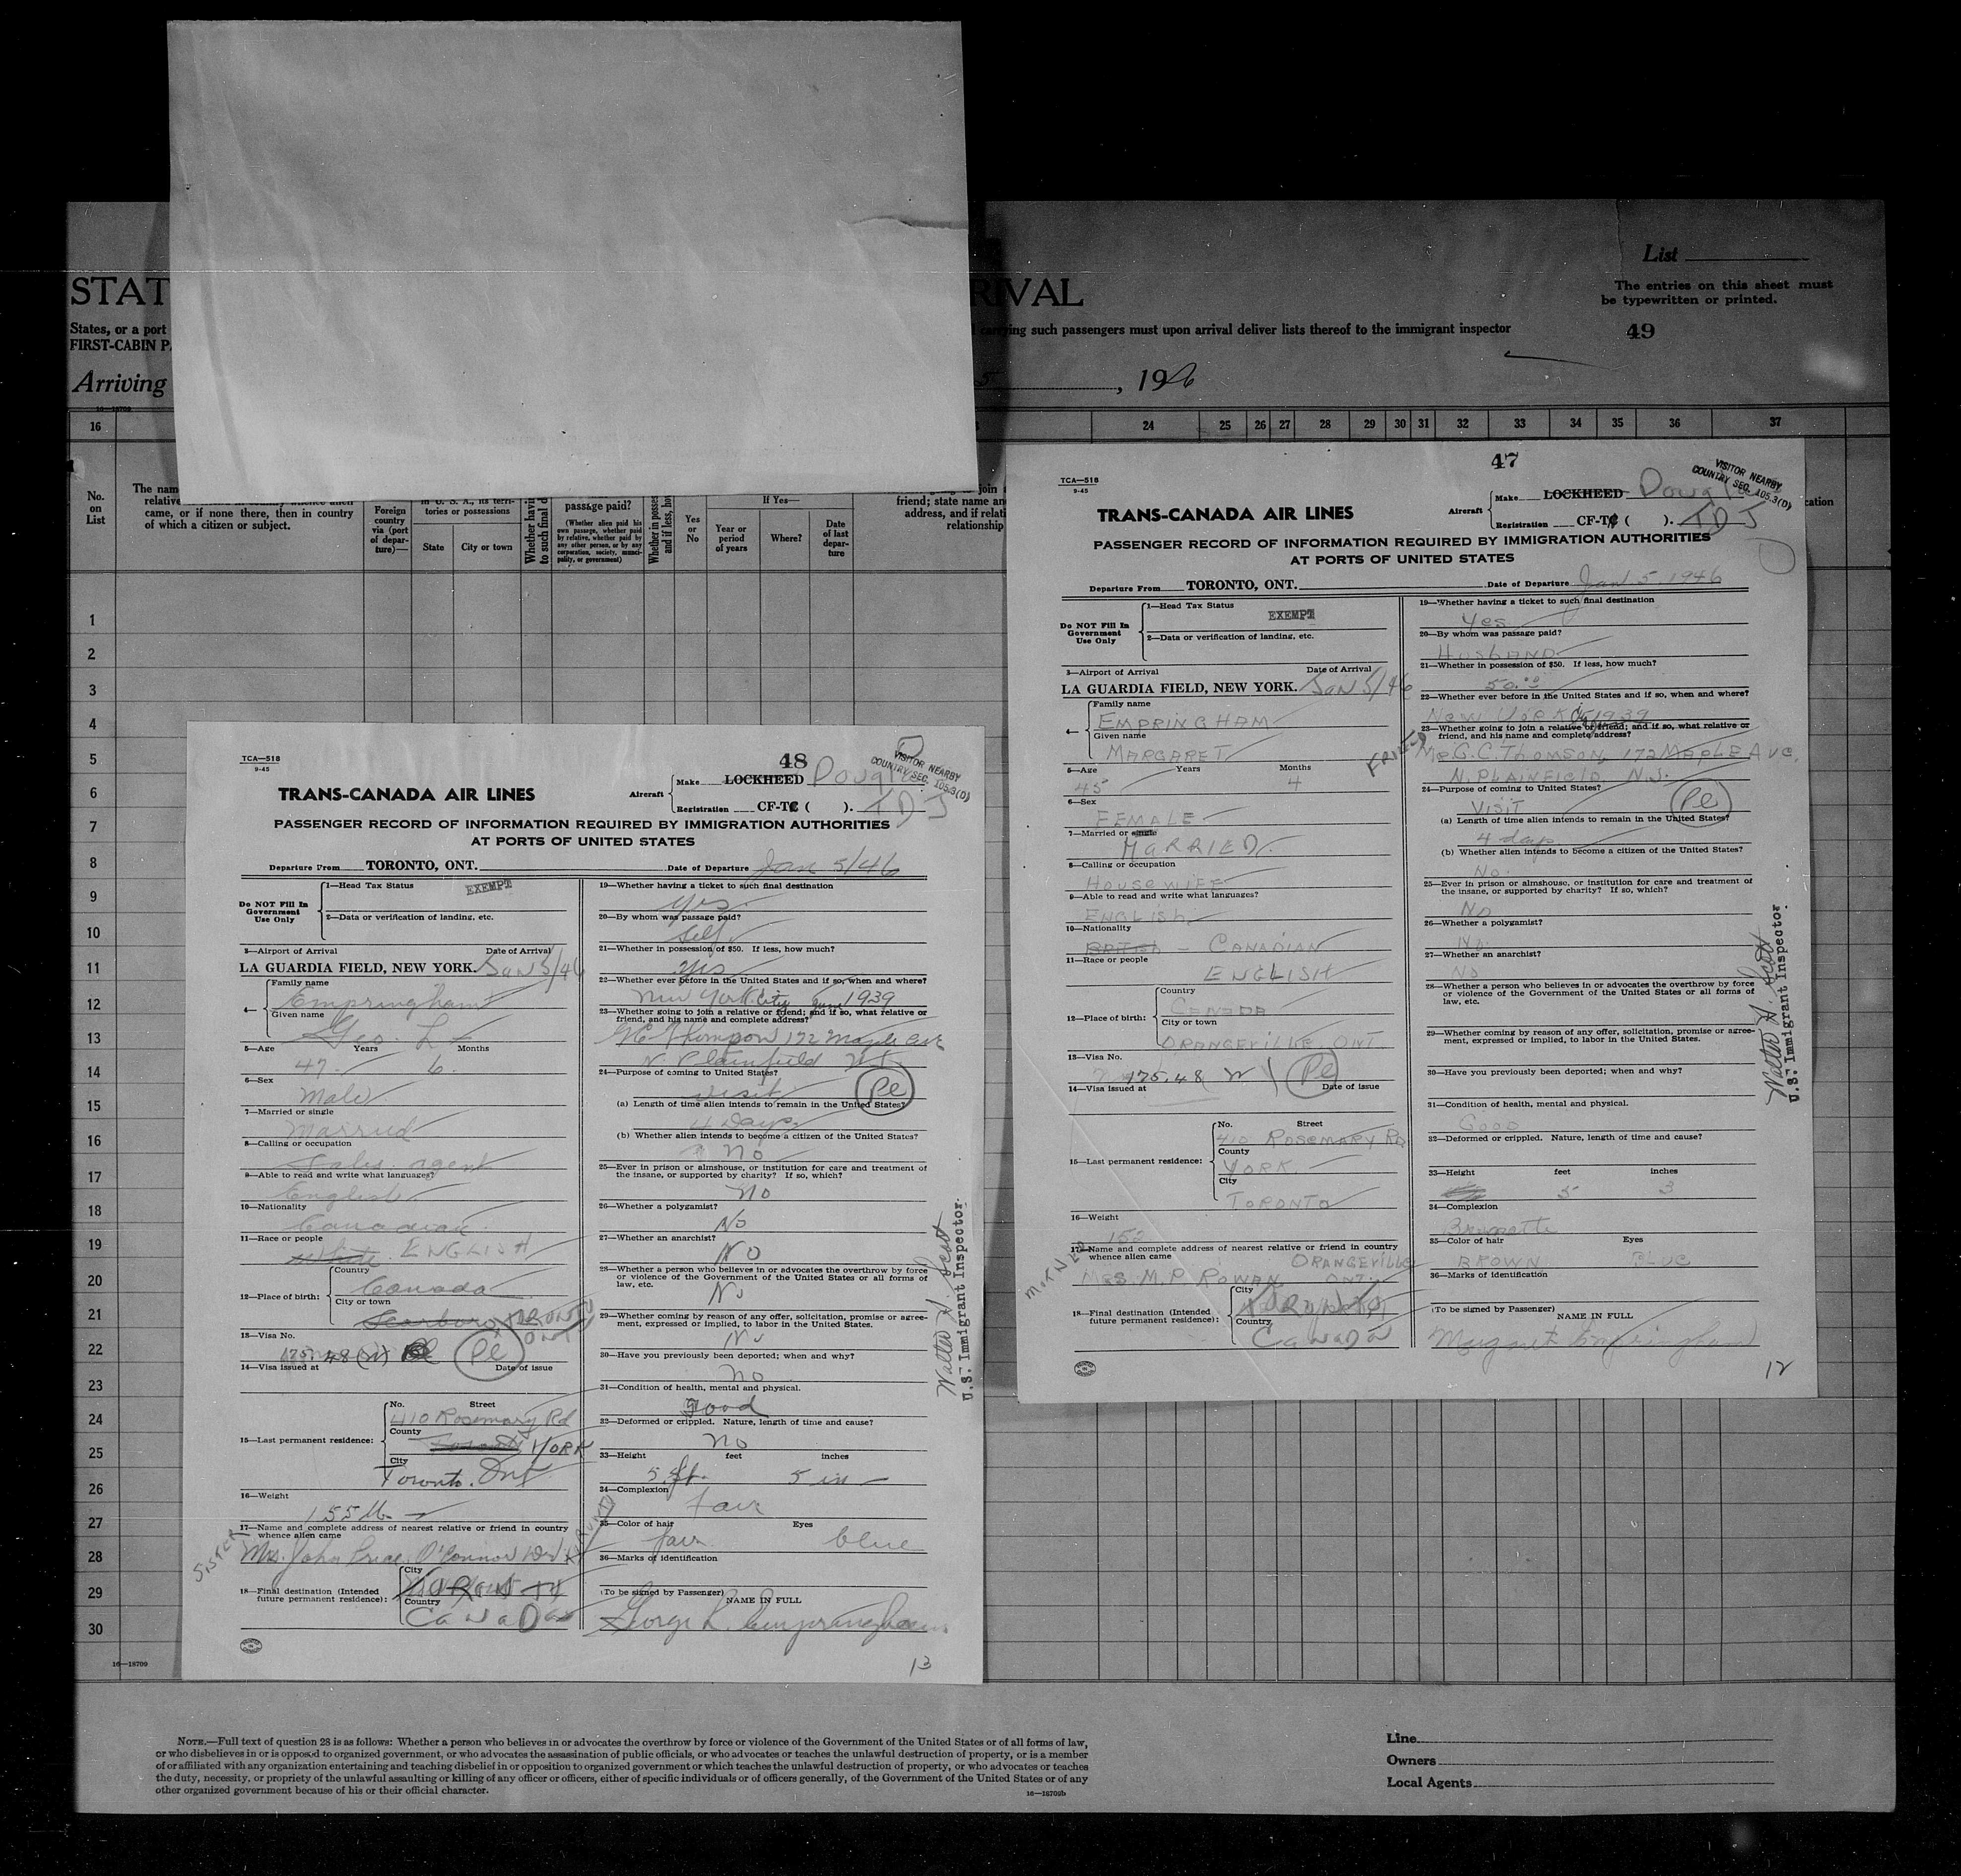 STAT
RIVAL
List
The entries on this sheet must
be typewritten or printed.
States, or a port
carrying such passengers must upon arrival deliver lists thereof to the immigrant inspector
49
FIRST-CABIN P
Arriving
5, 1946
16—18709
16 24 25 26 27 28 29 30 31 32 33 34 35 36 37
No. on List
The nam
relative
came, or if none there, then in country
of which a citizen or subject.
Foreign country via (port of departure)—
in U. S. A., its territories or possessions
State
City or town
Whether havi
to such final d
passage paid?
(Whether alien paid his own passage, whether paid by relative, whether paid by any other person, or by any corporation, society, municipality, or government)
Whether in posses
and if less, ho
Yes or No
If Yes—
Year or period of years
Where?
Date of last departure
join
friend; state name an
address, and if relati
relationship
1
2
3
4
5
6
7
8
9
10
11
12
13
14
15
16
17
18
19
20
21
22
23
24
25
26
27
28
29
30
16—18709
TCA—518
9-45
48
VISITOR NEARBY
COUNTRY SEC. 105.3(D)
TRANS-CANADA AIR LINES
Aircraft
Make LOCKHEED Douglas
Registration CF-TC ( ). TDJ
PASSENGER RECORD OF INFORMATION REQUIRED BY IMMIGRATION AUTHORITIES
AT PORTS OF UNITED STATES
Departure From TORONTO, ONT. Date of Departure Jan 5/46
Do NOT Fill In Government Use Only
1—Head Tax Status EXEMPT
2—Data or verification of landing, etc.
3—Airport of Arrival Date of Arrival
LA GUARDIA FIELD, NEW YORK. Jan 5/46
4— Family name
Empringham
Given name
Geo. L
5—Age Years Months
47 6
6—Sex
Male
7—Married or single
Married
8—Calling or occupation
Sales agent
9—Able to read and write what languages?
English
10—Nationality
Canadian
11—Race or people
White ENGLISH
12—Place of birth: Country
Canada
City or town
Scarboro TORONTO ONT
13—Visa No.
175.48 (N) Pl
14—Visa issued at Date of issue
15—Last permanent residence: No. Street
410 Rosemary Rd
County
YORK
City
Toronto. Ont
16—Weight
155 lb.
17—Name and complete address of nearest relative or friend in country
whence alien came
SISTER
Mrs. John Price, O'Connor Dr.
18—Final destination (Intended future permanent residence): City
Country
Canada
19—Whether having a ticket to such final destination
yes.
20—By whom was passage paid?
Self
21—Whether in possession of $50. If less, how much?
yes
22—Whether ever before in the United States and if so, when and where?
New York City June 1939
23—Whether going to join a relative or friend; and if so, what relative or
friend, and his name and complete address?
GC Thompson 172 Maple Ave
N. Plainfield NJ.
24—Purpose of coming to United States?
visit Pl
(a) Length of time alien intends to remain in the United States?
4 Days
(b) Whether alien intends to become a citizen of the United States?
No
25—Ever in prison or almshouse, or institution for care and treatment of
the insane, or supported by charity? If so, which?
No
26—Whether a polygamist?
No
27—Whether an anarchist?
No
28—Whether a person who believes in or advocates the overthrow by force
or violence of the Government of the United States or all forms of
law, etc.
No
29—Whether coming by reason of any offer, solicitation, promise or agree-
ment, expressed or implied, to labor in the United States.
No
30—Have you previously been deported; when and why?
No
31—Condition of health, mental and physical.
good
32—Deformed or crippled. Nature, length of time and cause?
No
33—Height feet inches
5 ft. 5 in
34—Complexion
fair
35—Color of hair Eyes
fair blue
36—Marks of identification
(To be signed by Passenger) NAME IN FULL
George L. Empringham
13
Walter H. Scott
U.S. Immigrant Inspector.
47
TCA—518
9-45
VISITOR NEARBY
COUNTRY SEC. 105.3(D)
TRANS-CANADA AIR LINES
Aircraft
Make LOCKHEED Douglas
Registration CF-TC ( ). TDJ
PASSENGER RECORD OF INFORMATION REQUIRED BY IMMIGRATION AUTHORITIES
AT PORTS OF UNITED STATES
Departure From TORONTO, ONT. Date of Departure Jan 5. 1946
Do NOT Fill In Government Use Only
1—Head Tax Status EXEMPT
2—Data or verification of landing, etc.
3—Airport of Arrival Date of Arrival
LA GUARDIA FIELD, NEW YORK. Jan 5/46
4— Family name
EMPRINGHAM
Given name
MARGARET
5—Age Years Months
45 4
6—Sex
FEMALE
7—Married or single
MARRIED
8—Calling or occupation
HOUSEWIFE
9—Able to read and write what languages?
ENGLISH
10—Nationality
BRITISH – CANADIAN
11—Race or people
ENGLISH
12—Place of birth: Country
CANADA
City or town
ORANGEVILLE, ONT.
13—Visa No.
175.48 N Pl
14—Visa issued at Date of issue
15—Last permanent residence: No. Street
410 ROSEMARY RD
County
YORK
City
TORONTO
16—Weight
153
17—Name and complete address of nearest relative or friend in country
whence alien came
MOTHER
MRS M. P. ROWAN ORANGEVILLE ONT.
18—Final destination (Intended future permanent residence): City
Country
Canada
19—Whether having a ticket to such final destination
Yes
20—By whom was passage paid?
HUSBAND
21—Whether in possession of $50. If less, how much?
50.00
22—Whether ever before in the United States and if so, when and where?
NEW YORK 1939
23—Whether going to join a relative or friend; and if so, what relative or
friend, and his name and complete address?
FRIEND
Mr G.C. THOMSON, 172 MAPLE AVE.
N. PLAINFIELD N.J.
24—Purpose of coming to United States?
VISIT Pl
(a) Length of time alien intends to remain in the United States?
4 days
(b) Whether alien intends to become a citizen of the United States?
No.
25—Ever in prison or almshouse, or institution for care and treatment of
the insane, or supported by charity? If so, which?
No
26—Whether a polygamist?
No.
27—Whether an anarchist?
No
28—Whether a person who believes in or advocates the overthrow by force
or violence of the Government of the United States or all forms of
law, etc.
29—Whether coming by reason of any offer, solicitation, promise or agree-
ment, expressed or implied, to labor in the United States.
30—Have you previously been deported; when and why?
31—Condition of health, mental and physical.
Good
32—Deformed or crippled. Nature, length of time and cause?
33—Height feet inches
5 3
34—Complexion
Brunette
35—Color of hair Eyes
BROWN BLUE
36—Marks of identification
(To be signed by Passenger) NAME IN FULL
Margaret Empringham
12
Walter H. Scott
U.S. Immigrant Inspector.
NOTE.—Full text of question 28 is as follows: Whether a person who believes in or advocates the overthrow by force or violence of the Government of the United States or of all forms of law,
or who disbelieves in or is opposed to organized government, or who advocates the assassination of public officials, or who advocates or teaches the unlawful destruction of property, or is a member
of or affiliated with any organization entertaining and teaching disbelief in or opposition to organized government or which teaches the unlawful destruction of property, or who advocates or teaches
the duty, necessity, or propriety of the unlawful assaulting or killing of any officer or officers, either of specific individuals or of officers generally, of the Government of the United States or of any
other organized government because of his or their official character.
16—18709b
Line
Owners
Local Agents